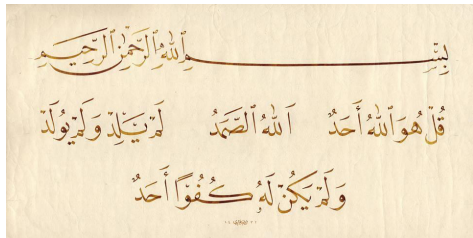 بِسْمِ اللهِ الرَّحْمٰنِ الرَّحِيمِ
قُلْ هُوَ اللهُ أَحَدٌ اَللهُ الصَّمَدُ لَمْ يَلِدْ وَلَمْ يُولَدْ
وَلَمْ يَكُنْ لَهُ كُفُوًا أَحَدٌ